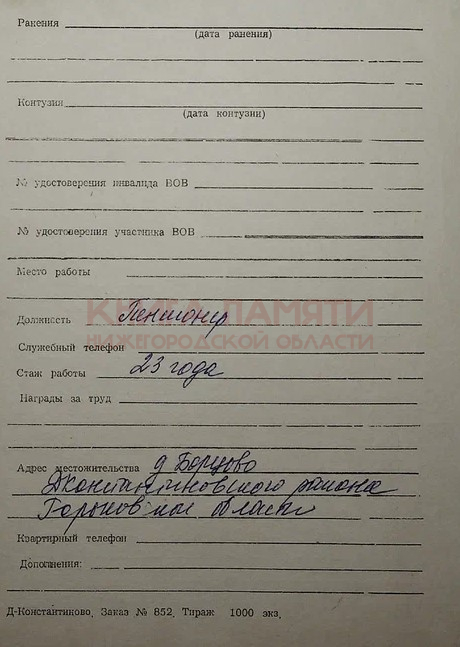 Ранения
(дата ранения)
Контузия
(дата контузии)
№ удостоверения инвалида ВОВ
№ удостоверения участника ВОВ
Место работы
КНИГА ПАМЯТИ
Должность Пенсионер
НИЖЕГОРОДСКОЙ ОБЛАСТИ
Служебный телефон
Стаж работы 23 года
Награды за труд
Адрес местожительства д Борцово
Дконстантиновского района
Горьковской области
Квартирный телефон
Дополнения:
Д-Константиново, Заказ № 852, Тираж 1000 экз,